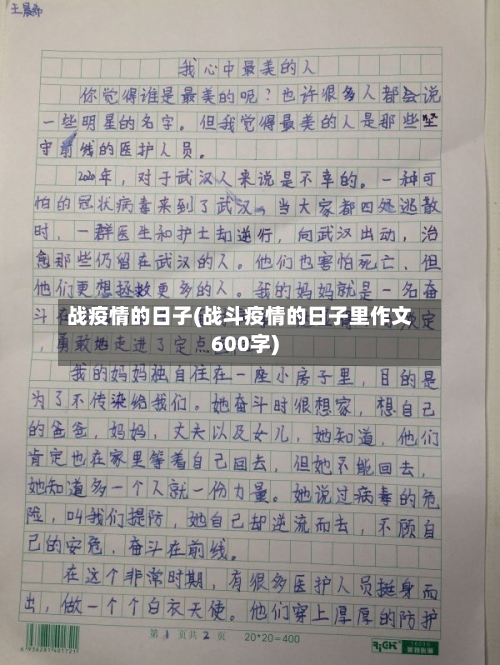 王晨希
我心中最美的人
你觉得谁是最美的呢？也许很多人都会说
一些明星的名字。但我觉得最美的人是那些坚
守前线的医护人员。
2020年，对于武汉人来说是不幸的。一种可
怕的冠状病毒来到了武汉。当大家都四处逃散
时，一群医生和护士却逆行，向武汉出动，治
愈那些仍留在武汉的人。他们也害怕死亡，但
他们更想拯救更多的人。我的妈妈就是一名奋
斗在
战疫情的日子(战斗疫情的日子里作文
600字)
定
勇敢地走进了定点
我的妈妈独自住在一座小房子里，目的是
为了不传染给我们。她奋斗时很想家，想自己
的爸爸，妈妈，丈夫以及女儿，她知道，他们
肯定也在家里等着自己回去，但她不能回去，
她知道多一个人就一份力量。她说过病毒的危
险，叫我们提防，她自己却逆流而去，不顾自
己的安危，奋斗在前线。
在这个非常时期，有很多医护人员挺身而
出，做一个个白衣天使。他们穿上厚厚的防护
第 1 页共 2 页 20*20=400
6956281401721